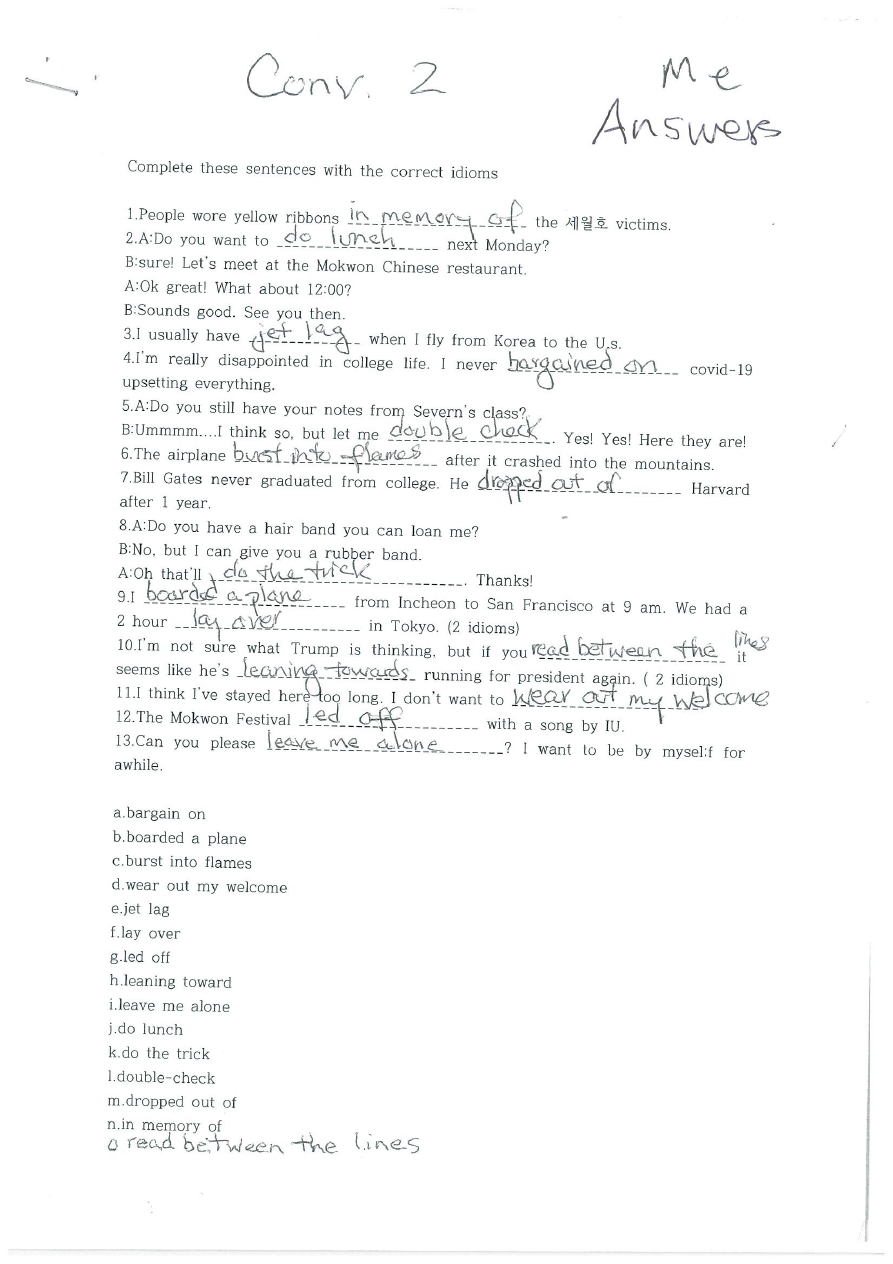 Conv. 2
Me
Answers
Complete these sentences with the correct idioms
1.People wore yellow ribbons in memory of the 세월호 victims.
2.A:Do you want to do lunch next Monday?
B:sure! Let's meet at the Mokwon Chinese restaurant.
A:Ok great! What about 12:00?
B:Sounds good. See you then.
3.I usually have jet lag when I fly from Korea to the U.s.
4.I'm really disappointed in college life. I never bargained on covid-19
upsetting everything.
5.A:Do you still have your notes from Severn's class?
B:Ummmm....I think so, but let me double check. Yes! Yes! Here they are!
6.The airplane burst into flames after it crashed into the mountains.
7.Bill Gates never graduated from college. He dropped out of Harvard
after 1 year.
8.A:Do you have a hair band you can loan me?
B:No, but I can give you a rubber band.
A:Oh that'll do the trick. Thanks!
9.I boarded a plane from Incheon to San Francisco at 9 am. We had a
2 hour lay over in Tokyo. (2 idioms)
10.I'm not sure what Trump is thinking, but if you read between the lines it
seems like he's leaning towards running for president again. ( 2 idioms)
11.I think I've stayed here too long. I don't want to wear out my welcome
12.The Mokwon Festival led off with a song by IU.
13.Can you please leave me alone? I want to be by mysel:f for
awhile.
a.bargain on
b.boarded a plane
c.burst into flames
d.wear out my welcome
e.jet lag
f.lay over
g.led off
h.leaning toward
i.leave me alone
j.do lunch
k.do the trick
l.double-check
m.dropped out of
n.in memory of
o read between the lines